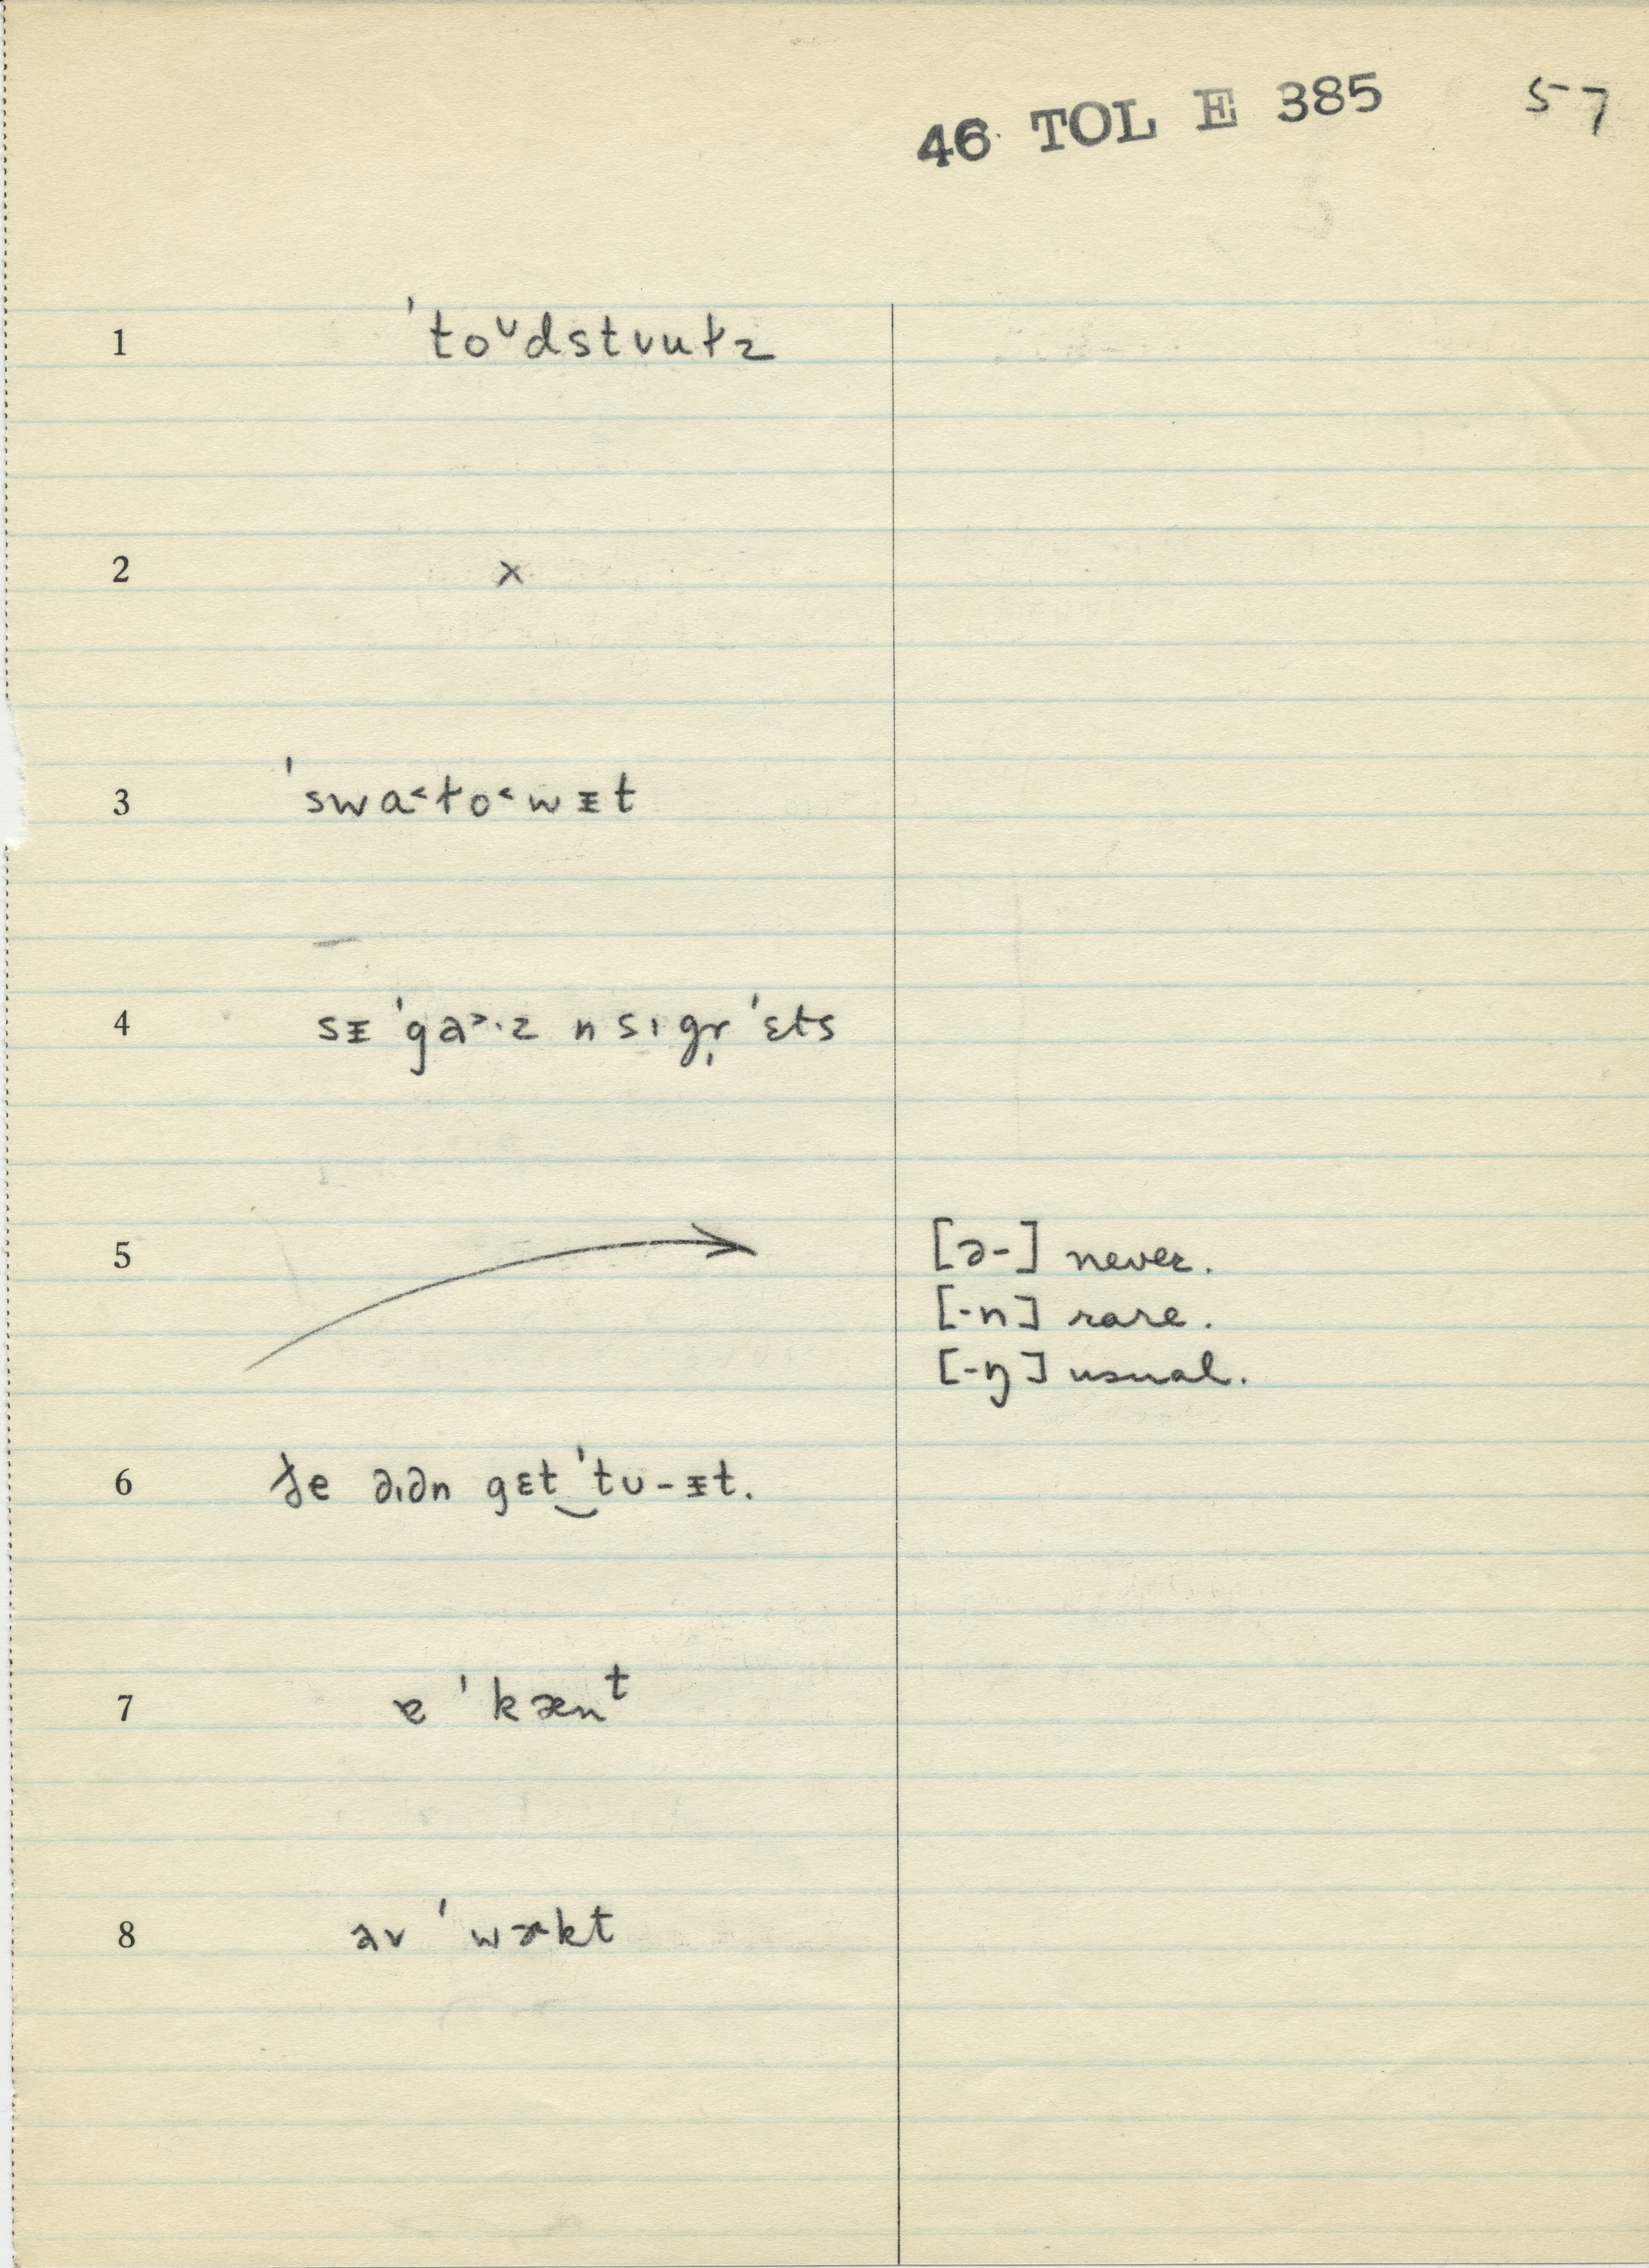 46 TOL E 385 57
1 ˈtoᶷdstvuɫz
2 x
3 ˈswa˂ɫo˂wᵻt
4 sᵻ ˈga˃·z n sɪgr̩ ˈɛts
5 [ə-] never.
[-n] rare.
[-ŋ] usual.
6 ɟe dɪdn gɛt‿ˈtu-ᵻt.
7 ɐ ˈkænᵗ
8 əv ˈwɚkt